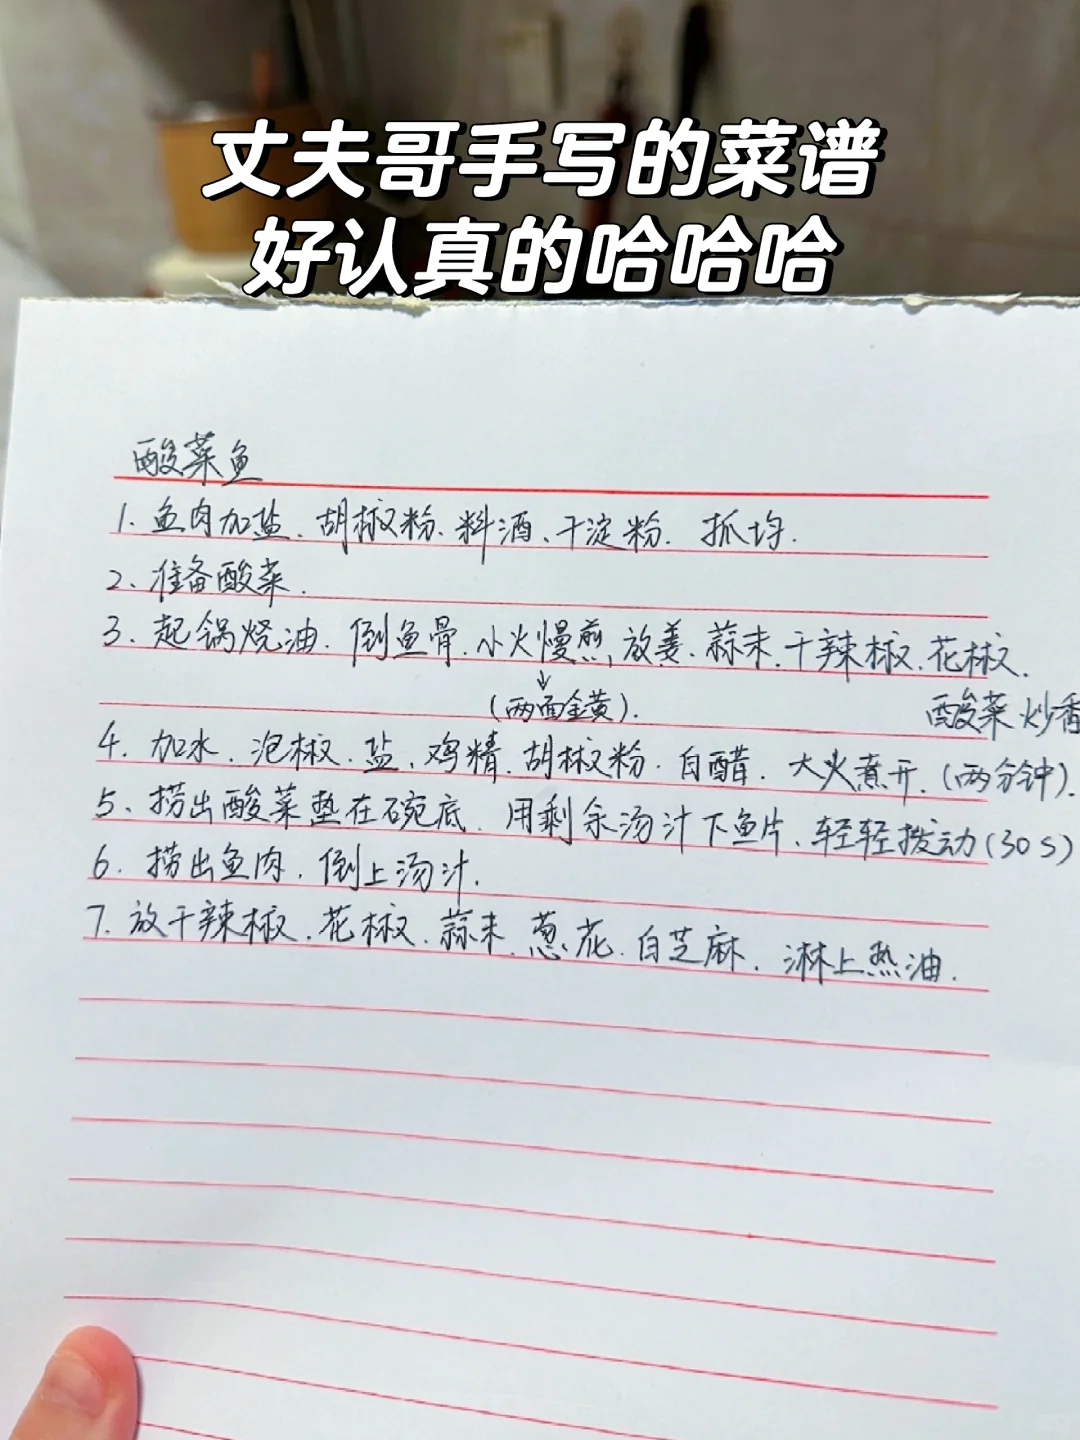 丈夫哥手写的菜谱
好认真的哈哈哈
酸菜鱼
1. 鱼肉加盐、胡椒粉、料酒、干淀粉. 抓均.
2. 准备酸菜.
3. 起锅烧油. 倒鱼骨. 小火慢煎, 放姜、蒜末、干辣椒、花椒.
↓
(两面金黄).
酸菜炒香
4. 加水、泡椒、盐、鸡精、胡椒粉. 白醋. 大火煮开. (两分钟).
5. 捞出酸菜垫在碗底. 用剩余汤汁下鱼片、轻轻拨动(30s)
6. 捞出鱼肉. 倒上汤汁.
7. 放干辣椒、花椒、蒜末、葱花、白芝麻. 淋上热油.